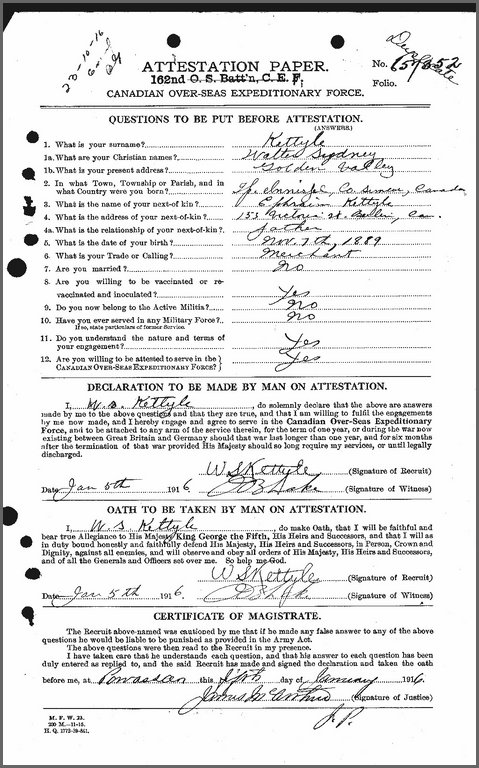 23-10-16
Duplicate
ATTESTATION PAPER.
No.
162nd O. S. Batt'n, C. E. F.
Folio.
CANADIAN OVER-SEAS EXPEDITIONARY FORCE.
QUESTIONS TO BE PUT BEFORE ATTESTATION.
(ANSWERS.)
1. What is your surname? Kettyle
1a. What are your Christian names? Walter Sydney
1b. What is your present address? Golden Valley
2. In what Town, Township or Parish, and in
what Country were you born? Tp. Innisfil, Co. Simcoe, Canada
3. What is the name of your next-of-kin? Ephraim Kettyle
4. What is the address of your next-of-kin? 153 Victoria St. Berlin, Can.
4a. What is the relationship of your next-of-kin? father
5. What is the date of your birth? Nov. 7th, 1889
6. What is your Trade or Calling? Merchant
7. Are you married? No
8. Are you willing to be vaccinated or re-
vaccinated and inoculated? Yes
9. Do you now belong to the Active Militia? No
10. Have you ever served in any Military Force? No
If so, state particulars of former Service.
11. Do you understand the nature and terms of
your engagement? Yes
12. Are you willing to be attested to serve in the
CANADIAN OVER-SEAS EXPEDITIONARY FORCE? Yes
DECLARATION TO BE MADE BY MAN ON ATTESTATION.
I, W. S. Kettyle, do solemnly declare that the above are answers
made by me to the above questions and that they are true, and that I am willing to fulfil the engagements
by me now made, and I hereby engage and agree to serve in the Canadian Over-Seas Expeditionary
Force, and to be attached to any arm of the service therein, for the term of one year, or during the war now
existing between Great Britain and Germany should that war last longer than one year, and for six months
after the termination of that war provided His Majesty should so long require my services, or until legally
discharged.
W S Kettyle (Signature of Recruit)
Date Jan 5th 1916 (Signature of Witness)
OATH TO BE TAKEN BY MAN ON ATTESTATION.
I, W S Kettyle, do make Oath, that I will be faithful and
bear true Allegiance to His Majesty King George the Fifth, His Heirs and Successors, and that I will as
in duty bound honestly and faithfully defend His Majesty, His Heirs and Successors, in Person, Crown and
Dignity, against all enemies, and will observe and obey all orders of His Majesty, His Heirs and Successors,
and of all the Generals and Officers set over me. So help me God.
W S Kettyle (Signature of Recruit)
Date Jan 5th 1916 (Signature of Witness)
CERTIFICATE OF MAGISTRATE.
The Recruit above-named was cautioned by me that if he made any false answer to any of the above
questions he would be liable to be punished as provided in the Army Act.
The above questions were then read to the Recruit in my presence.
I have taken care that he understands each question, and that his answer to each question has been
duly entered as replied to, and the said Recruit has made and signed the declaration and taken the oath
before me, at Powassan this 5th day of January 1916
James McArthur (Signature of Justice)
J.P.
M. F. W. 23.
200 M.-11-15.
H. Q. 1772-39-841.